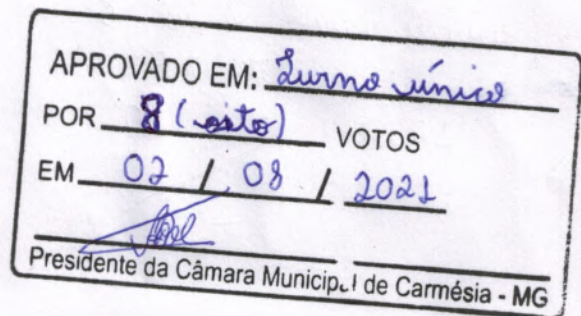 APROVADO EM: Turno único
POR 8 (oito) VOTOS
EM 02 / 08 / 2021
Presidente da Câmara Municipal de Carmésia - MG